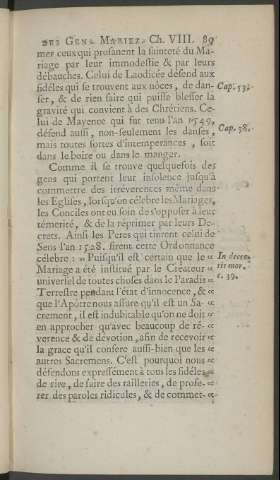 DES GENS MARIEZ. Ch. VIII. 89
mer ceux qui profanent la sainteté du Ma-
riage par leur immodestie & par leurs
débauches. Celui de Laodicée défend aux
fidéles qui se trouvent aux nôces, de dan-
ser, & de rien faire qui puisse blesser la
gravité qui convient à des Chrétiens. Ce-
lui de Mayence qui fut tenu l'an 1549,
défend aussi, non-seulement les danses,
mais toutes sortes d'intemperances, soit
dans le boire ou dans le manger.
Comme il se trouve quelquefois des
gens qui portent leur insolence jusqu'à
commettre des irréverences même dans
les Eglises, lorsqu'on célebre les Mariages,
les Conciles ont eu soin de s'opposer à leur
témérité, & de la réprimer par leurs De-
crets. Ainsi les Peres qui tinrent celui de
Sens l'an 1528. firent cette Ordonnance
célebre : » Puisqu'il est certain que le «
Mariage a été institué par le Créateur «
universel de toutes choses dans le Paradis «
Terrestre pendant l'état d'innocence, & «
que l'Apôtre nous assure qu'il est un Sa- «
crement, il est indubitable qu'on ne doit «
en approcher qu'avec beaucoup de ré- «
verence & de dévotion, afin de recevoir «
la grace qu'il confere aussi-bien que les «
autres Sacremens. C'est pourquoi nous «
défendons expressément à tous les fidéles «
de rire, de faire des railleries, de profe- «
rer des paroles ridicules, & de commet- «
Cap. 53.
Cap. 38.
In decre.
tit mor.
c. 39.